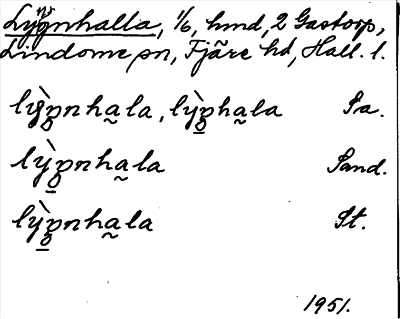 Lygnhalla, 1/6, hmd, 2 Gastorp,
Lindome sn, Fjäre hd, Hall. l.
lỳgnha̰la, lỳgha̰la Sa.
lỳgnha̰la Sand.
lỳgnha̰la St.
1951.